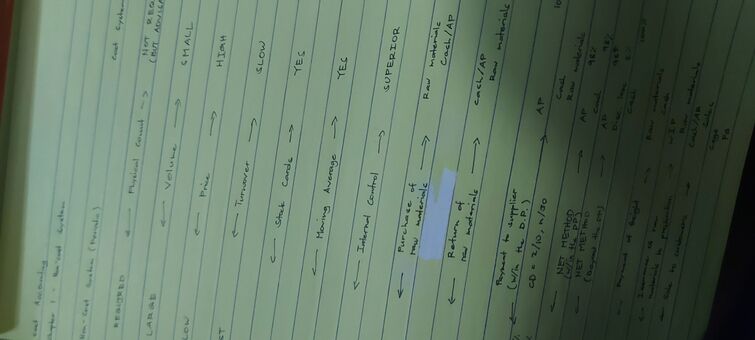 Cost Accounting
Chapter 1 - Non-cost System
Non-Cost System (Periodic) Cost System
REQUIRED <— Physical Count —> NOT REQ
(BUT ADVIS
LARGE <— Volume —> SMALL
LOW <— Price —> HIGH
ST <— Turnover —> SLOW
<— Stock Cards —> YES
<— Moving Average —> YES
<— Internal Control —> SUPERIOR
<— Purchase of —> Raw materials
raw materials Cash/AP
<— Return of —> Cash/AP
raw materials Raw materials
Payment to supplier —> AP
<— (W/in the D.P.) Cash
CD = 2/10, n/30 Raw materials
<— NET METHOD —> AP 98%
(W/in the DP) Cash 98%
<— NET METHOD —> AP 98%
(beyond the DP) Disc. loss
Cash 100%
<— Payment of freight —> Raw materials
Cash
<— Issuance of raw —> WIP
materials to production Raw materials
<— Sale to customers —> Cash/AR
Sales
COGS
FG